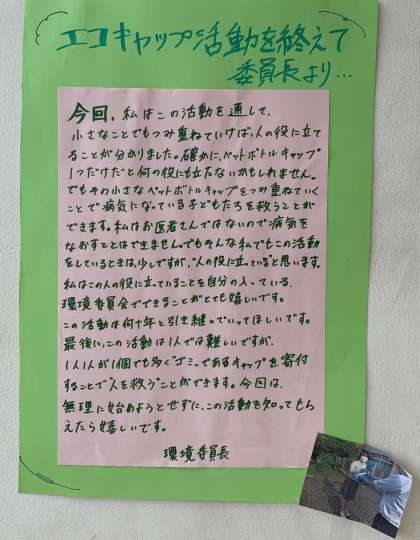 エコキャップ活動を終えて
委員長より…
今回、私はこの活動を通して、
小さなことでもつみ重ねていけば、人の役に立て
ることが分かりました。確かに、ペットボトルキャップ
1つだけだと何の役にも立たないかもしれません。
でもその小さなペットボトルキャップをつみ重ねていく
ことで病気になっている子どもたちを救うことが
できます。私はお医者さんではないので病気を
なおすことはできません。でもそんな私でもこの活動
をしているときは、少しですが、"人の役に立っている"と思います。
私はこの人の役に立っていることを自分の入っている、
環境委員会でできることがとても嬉しいです。
この活動は何十年と引き継いでいってほしいです。
最後に、この活動は1人では難しいですが、
1人1人が1個でも多く"ゴミ"であるキャップを寄付
することで"人を救う"ことができます。今回は、
無理に始めようとせずに、この活動を知ってもら
えたら嬉しいです。
環境委員長